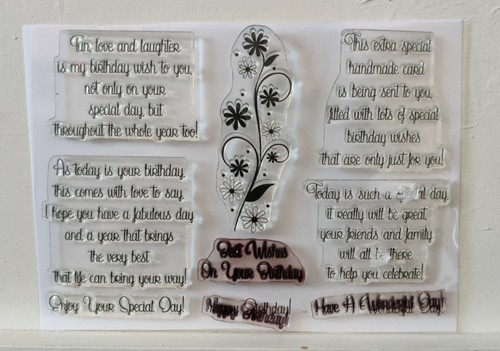 Fun, love and laughter
is my birthday wish to you,
not only on your
special day, but
throughout the whole year too!
This extra special
handmade card
is being sent to you,
filled with lots of special
birthday wishes
that are only just for you!
As today is your birthday,
this comes with love to say,
I hope you have a fabulous day
and a year that brings
the very best
that life can bring your way!
Today is such a special day,
it really will be great,
your friends and family
will all be there
to help you celebrate!
Best Wishes
On Your Birthday
Enjoy Your Special Day!
Happy Birthday!
Have A Wonderful Day!